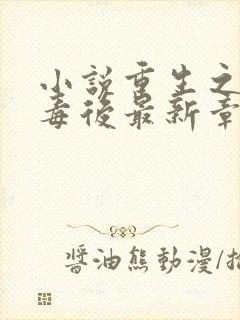 小說重生之
毒後最新章
醬油熊動漫/插